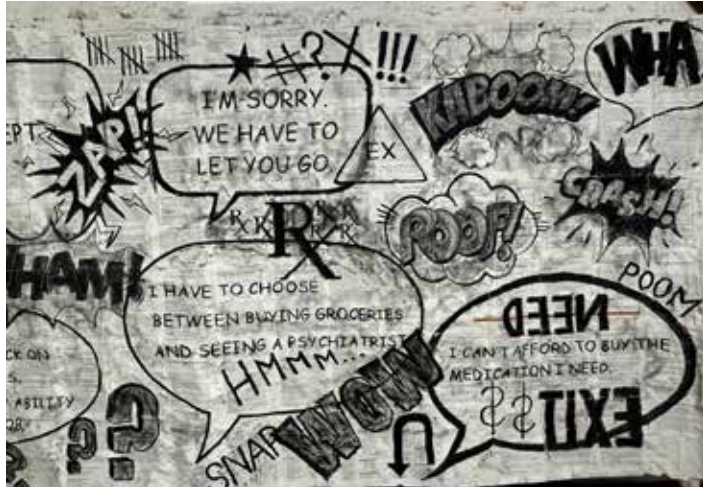 #?X!!!
WHA
KABOOM!
EPT
ZAP!
I'M SORRY.
WE HAVE TO
LET YOU GO
EX
CRASH!
POOF!
Rx
HAM!
POOM
I HAVE TO CHOOSE
BETWEEN BUYING GROCERIES
AND SEEING A PSYCHIATRIST
HMMM...
NEED
I CAN'T AFFORD TO BUY THE
MEDICATION I NEED.
$$
EXIT
CK ON
S.
ABILITY
OR
???
WOW
SNAP